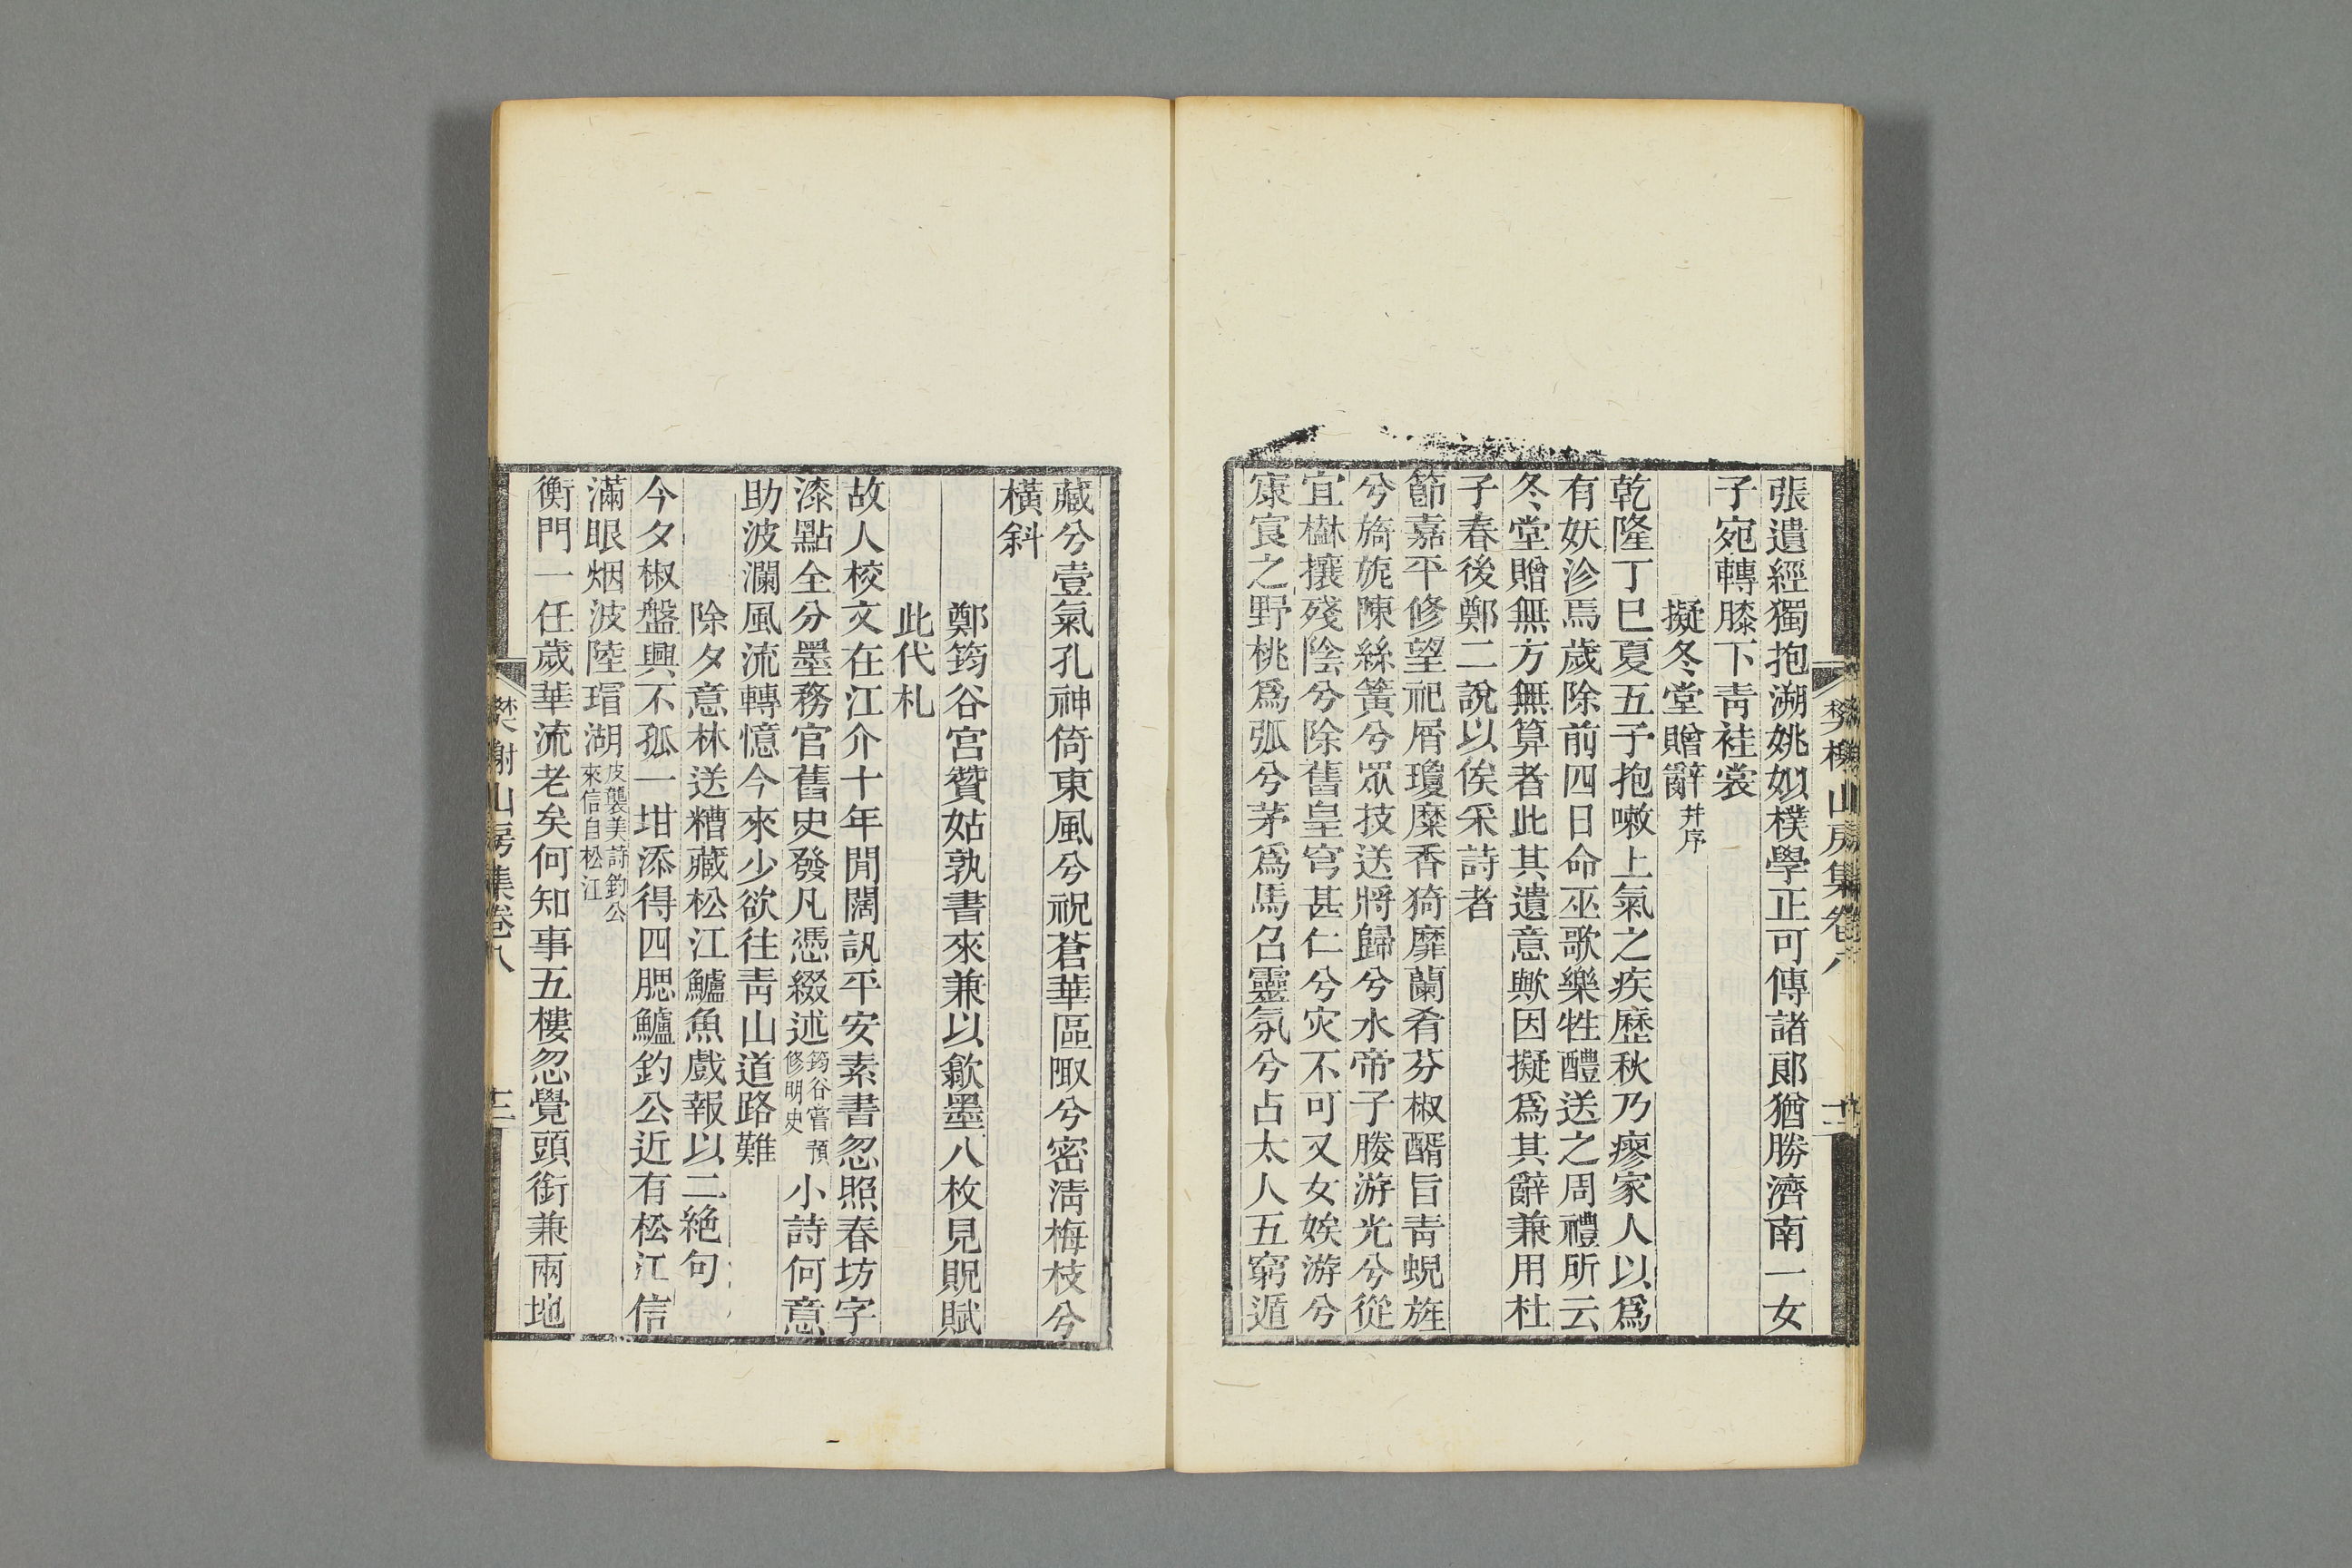 樊榭山房集卷八
張遺經獨抱溯姚姒樸學正可傳諸郎猶勝濟南一女
子宛轉膝下靑袿裳
擬冬堂贈辭并序
乾隆丁巳夏五予抱嗽上氣之疾歷秋乃瘳家人以爲
有妖沴焉歲除前四日命巫歌樂牲醴送之周禮所云
冬堂贈無方無算者此其遺意歟因擬爲其辭兼用杜
子春後鄭二說以俟采詩者
節嘉平修望祀屑瓊糜香猗靡蘭肴芬椒醑旨靑蜺旌
兮旖旎陳絲簧兮眾技送將歸兮水帝子媵游光兮從
宜楙攘殘陰兮除舊皇穹甚仁兮灾不可又女娭游兮
㝩㝗之野桃爲弧兮茅爲馬召靈氛兮占太人五窮遁
藏兮壹氣孔神倚東風兮祝蒼華區陬兮密淸梅枝兮
橫斜
鄭筠谷宮贊姑孰書來兼以歙墨八枚見貺賦
此代札
故人校文在江介十年閒闊訊平安素書忽照春坊字
漆點全分墨務官舊史發凡憑綴述筠谷嘗預修明史小詩何意
助波瀾風流轉憶今來少欲往靑山道路難
除夕意林送糟藏松江鱸魚戲報以二絶句
今夕椒盤興不孤一坩添得四腮鱸釣公近有松江信
滿眼烟波陸瑁湖皮襲美詩釣公來信自松江
衡門一任歲華流老矣何知事五樓忽覺頭銜兼兩地
樊榭山房集卷八